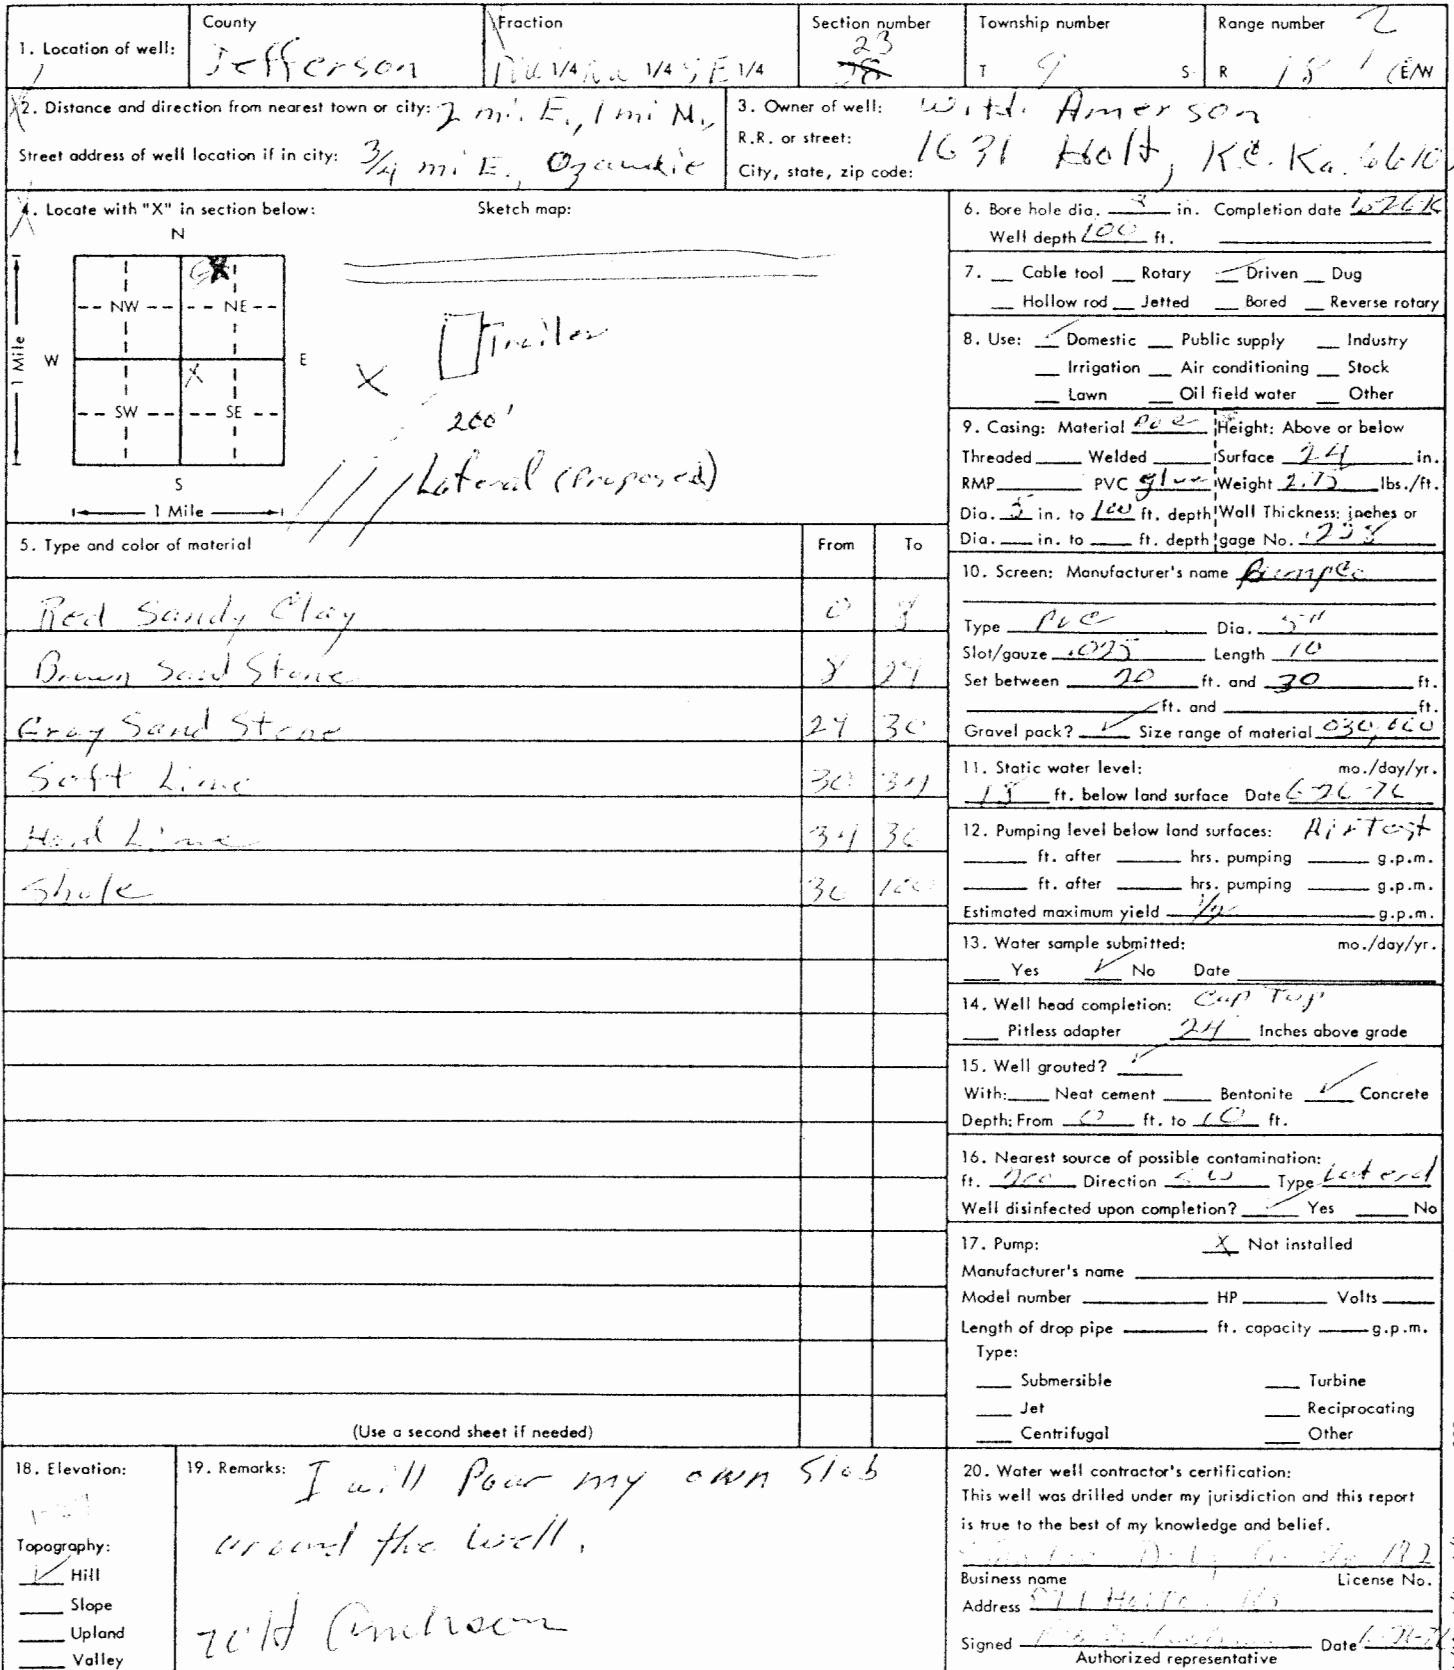 1. Location of well: County Jefferson Fraction 1/4 1/4 SE 1/4 Section number 23 Township number T 9 S Range number R 18 E/W
2
2. Distance and direction from nearest town or city: 2 mi. E., 1 mi N.,
Street address of well location if in city: 3/4 mi E. Ozawkie
3. Owner of well: W.H. Amerson
R.R. or street: 1631 Holt,
City, state, zip code: KC. Ka. 6610
4. Locate with "X" in section below: Sketch map:
N
NW NE
W E
X
SW SE
S
1 Mile
1 Mile
Trailer
X
200'
Lateral (Proposed)
5. Type and color of material From To
Red Sandy Clay 0 8
Brown Sand Stone 8 24
Gray Sand Stone 24 30
Soft Lime 30 34
Hard Lime 34 36
Shale 36 100
(Use a second sheet if needed)
6. Bore hole dia. in. Completion date
Well depth 100 ft.
7. Cable tool Rotary Driven Dug
Hollow rod Jetted Bored Reverse rotary
8. Use: Domestic Public supply Industry
Irrigation Air conditioning Stock
Lawn Oil field water Other
9. Casing: Material PVC Height: Above or below
Threaded Welded Surface 24 in.
RMP PVC glue Weight lbs./ft.
Dia. 5 in. to 100 ft. depth Wall Thickness: inches or
Dia. in. to ft. depth gage No.
10. Screen: Manufacturer's name
Type PVC Dia. 5"
Slot/gauze .025 Length 10
Set between 20 ft. and 30 ft.
ft. and ft.
Gravel pack? Size range of material
11. Static water level: mo./day/yr.
ft. below land surface Date 6-26-76
12. Pumping level below land surfaces: Air Test
ft. after hrs. pumping g.p.m.
ft. after hrs. pumping g.p.m.
Estimated maximum yield 1/2 g.p.m.
13. Water sample submitted: mo./day/yr.
Yes No Date
14. Well head completion: Cap Top
Pitless adapter 24 Inches above grade
15. Well grouted?
With: Neat cement Bentonite Concrete
Depth: From 0 ft. to 10 ft.
16. Nearest source of possible contamination:
ft. 200 Direction SW Type Lateral
Well disinfected upon completion? Yes No
17. Pump: X Not installed
Manufacturer's name
Model number HP Volts
Length of drop pipe ft. capacity g.p.m.
Type:
Submersible Turbine
Jet Reciprocating
Centrifugal Other
18. Elevation:
Topography:
Hill
Slope
Upland
Valley
19. Remarks: I will Pour my own Slab
around the well.
W H Amerson
20. Water well contractor's certification:
This well was drilled under my jurisdiction and this report
is true to the best of my knowledge and belief.
182
Business name License No.
Address
Signed Date 6-26-76
Authorized representative